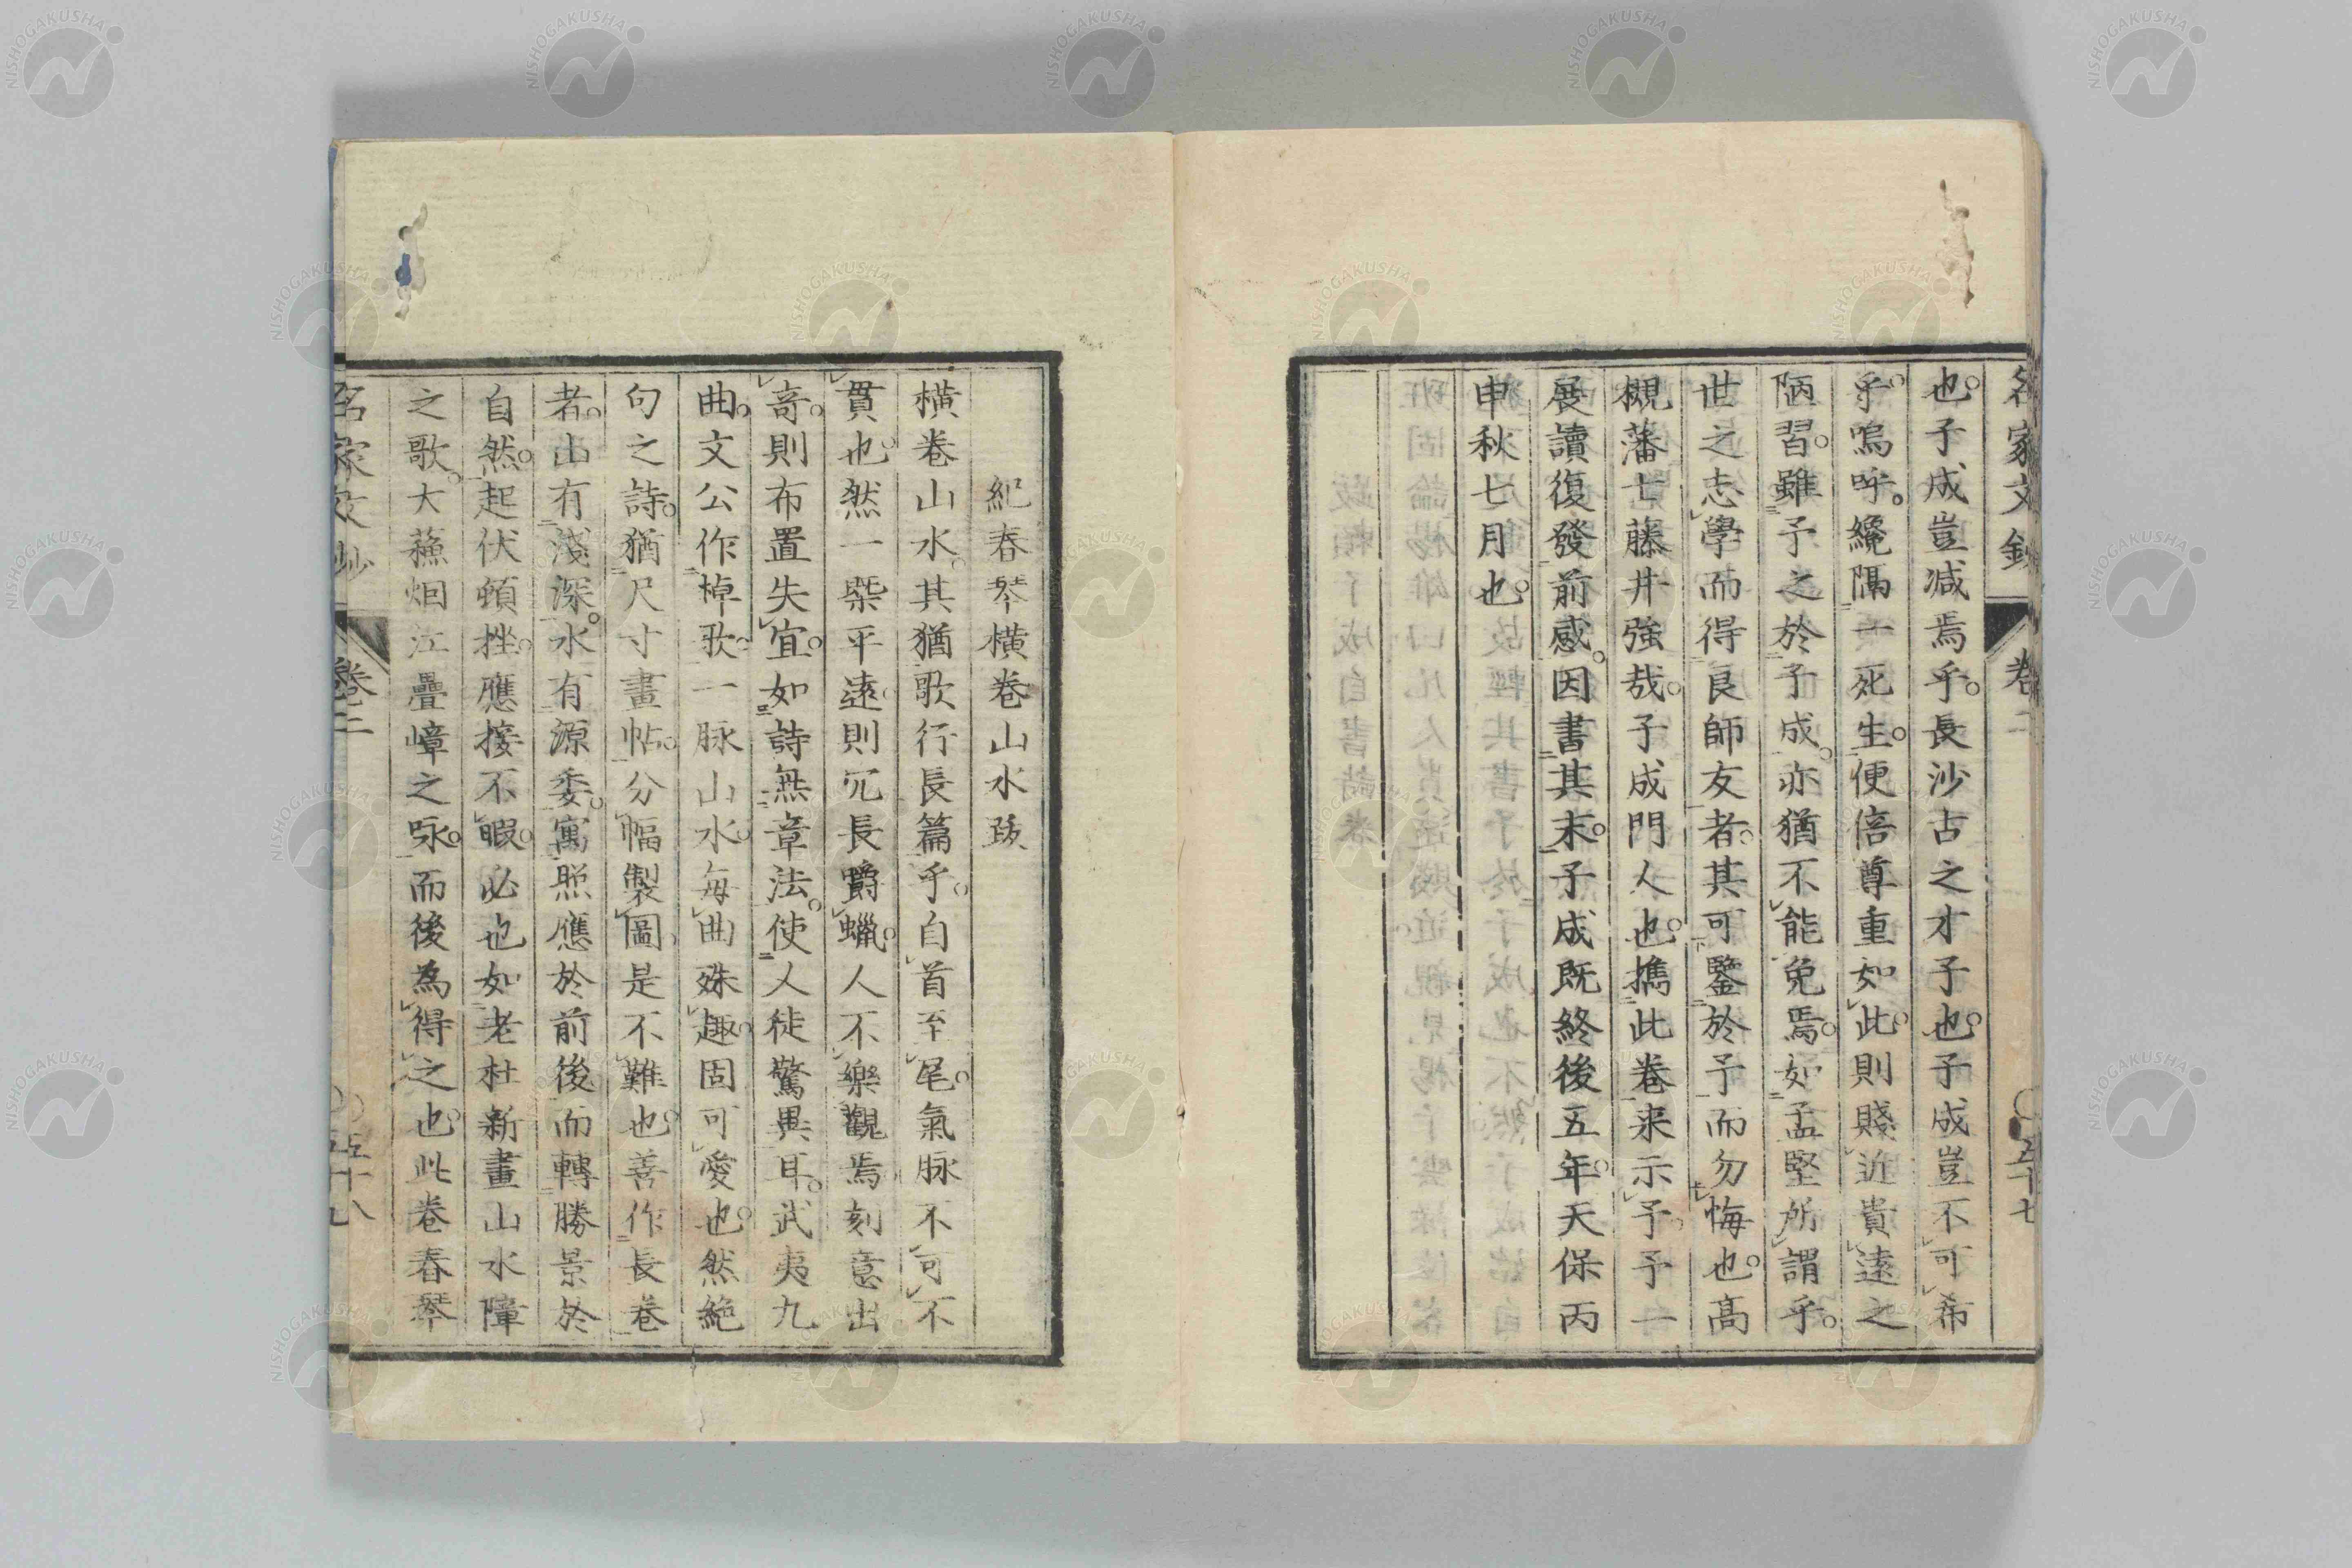 名家文鈔 卷二 五十七
也。子成豈減焉乎。長沙古之才子也。子成豈不可希
乎。嗚呼。纔隔一死生。便倍尊重如此。則賤近貴遠之
陋習。雖予之於子成。亦猶不能免焉。如孟堅所謂乎。
世之志學而得良師友者。其可鑒於予而勿悔也。高
槻藩士藤井強哉。子成門人也。擕此卷来示予。予一
展讀復發前感。因書其末。子成既終後五年。天保丙
申秋七月也。
紀春琴橫卷山水跋
橫卷山水。其猶歌行長篇乎。自首至尾。氣脉不可不
貫也。然一槩平遠則冗長爵蠟。人不樂觀焉。刻意出
奇。則布置失宜。如詩無章法。使人徒驚異耳。武夷九
曲。文公作棹歌。一脉山水。每曲殊趣。固可愛也。然絕
句之詩。猶尺寸畫帖。分幅製圖。是不難也。善作長卷
者。山有淺深。水有源委。寓照應於前後。而轉勝景於
自然。起伏頓挫。應接不暇。必也如老杜新畫山水障
之歌。大蘓烟江疊嶂之咏。而後為得之也。此卷春琴
名家文鈔 卷二 五十八